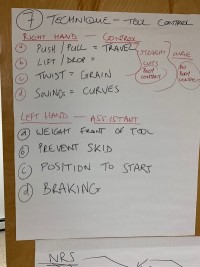 ⑦ TECHNIQUE - TOOL CONTROL
RIGHT HAND - CONTROL
ⓐ PUSH / PULL = TRAVEL
ⓑ LIFT / DROP =
ⓒ TWIST = GRAIN
ⓓ SWINGS = CURVES
STRAIGHT
CUTS
BODY
CURVE
NO
BODY
LEFT HAND - ASSISTANT
ⓐ WEIGHT FRONT OF TOOL
ⓑ PREVENT SKID
ⓒ POSITION TO START
ⓓ BRAKING
NRS